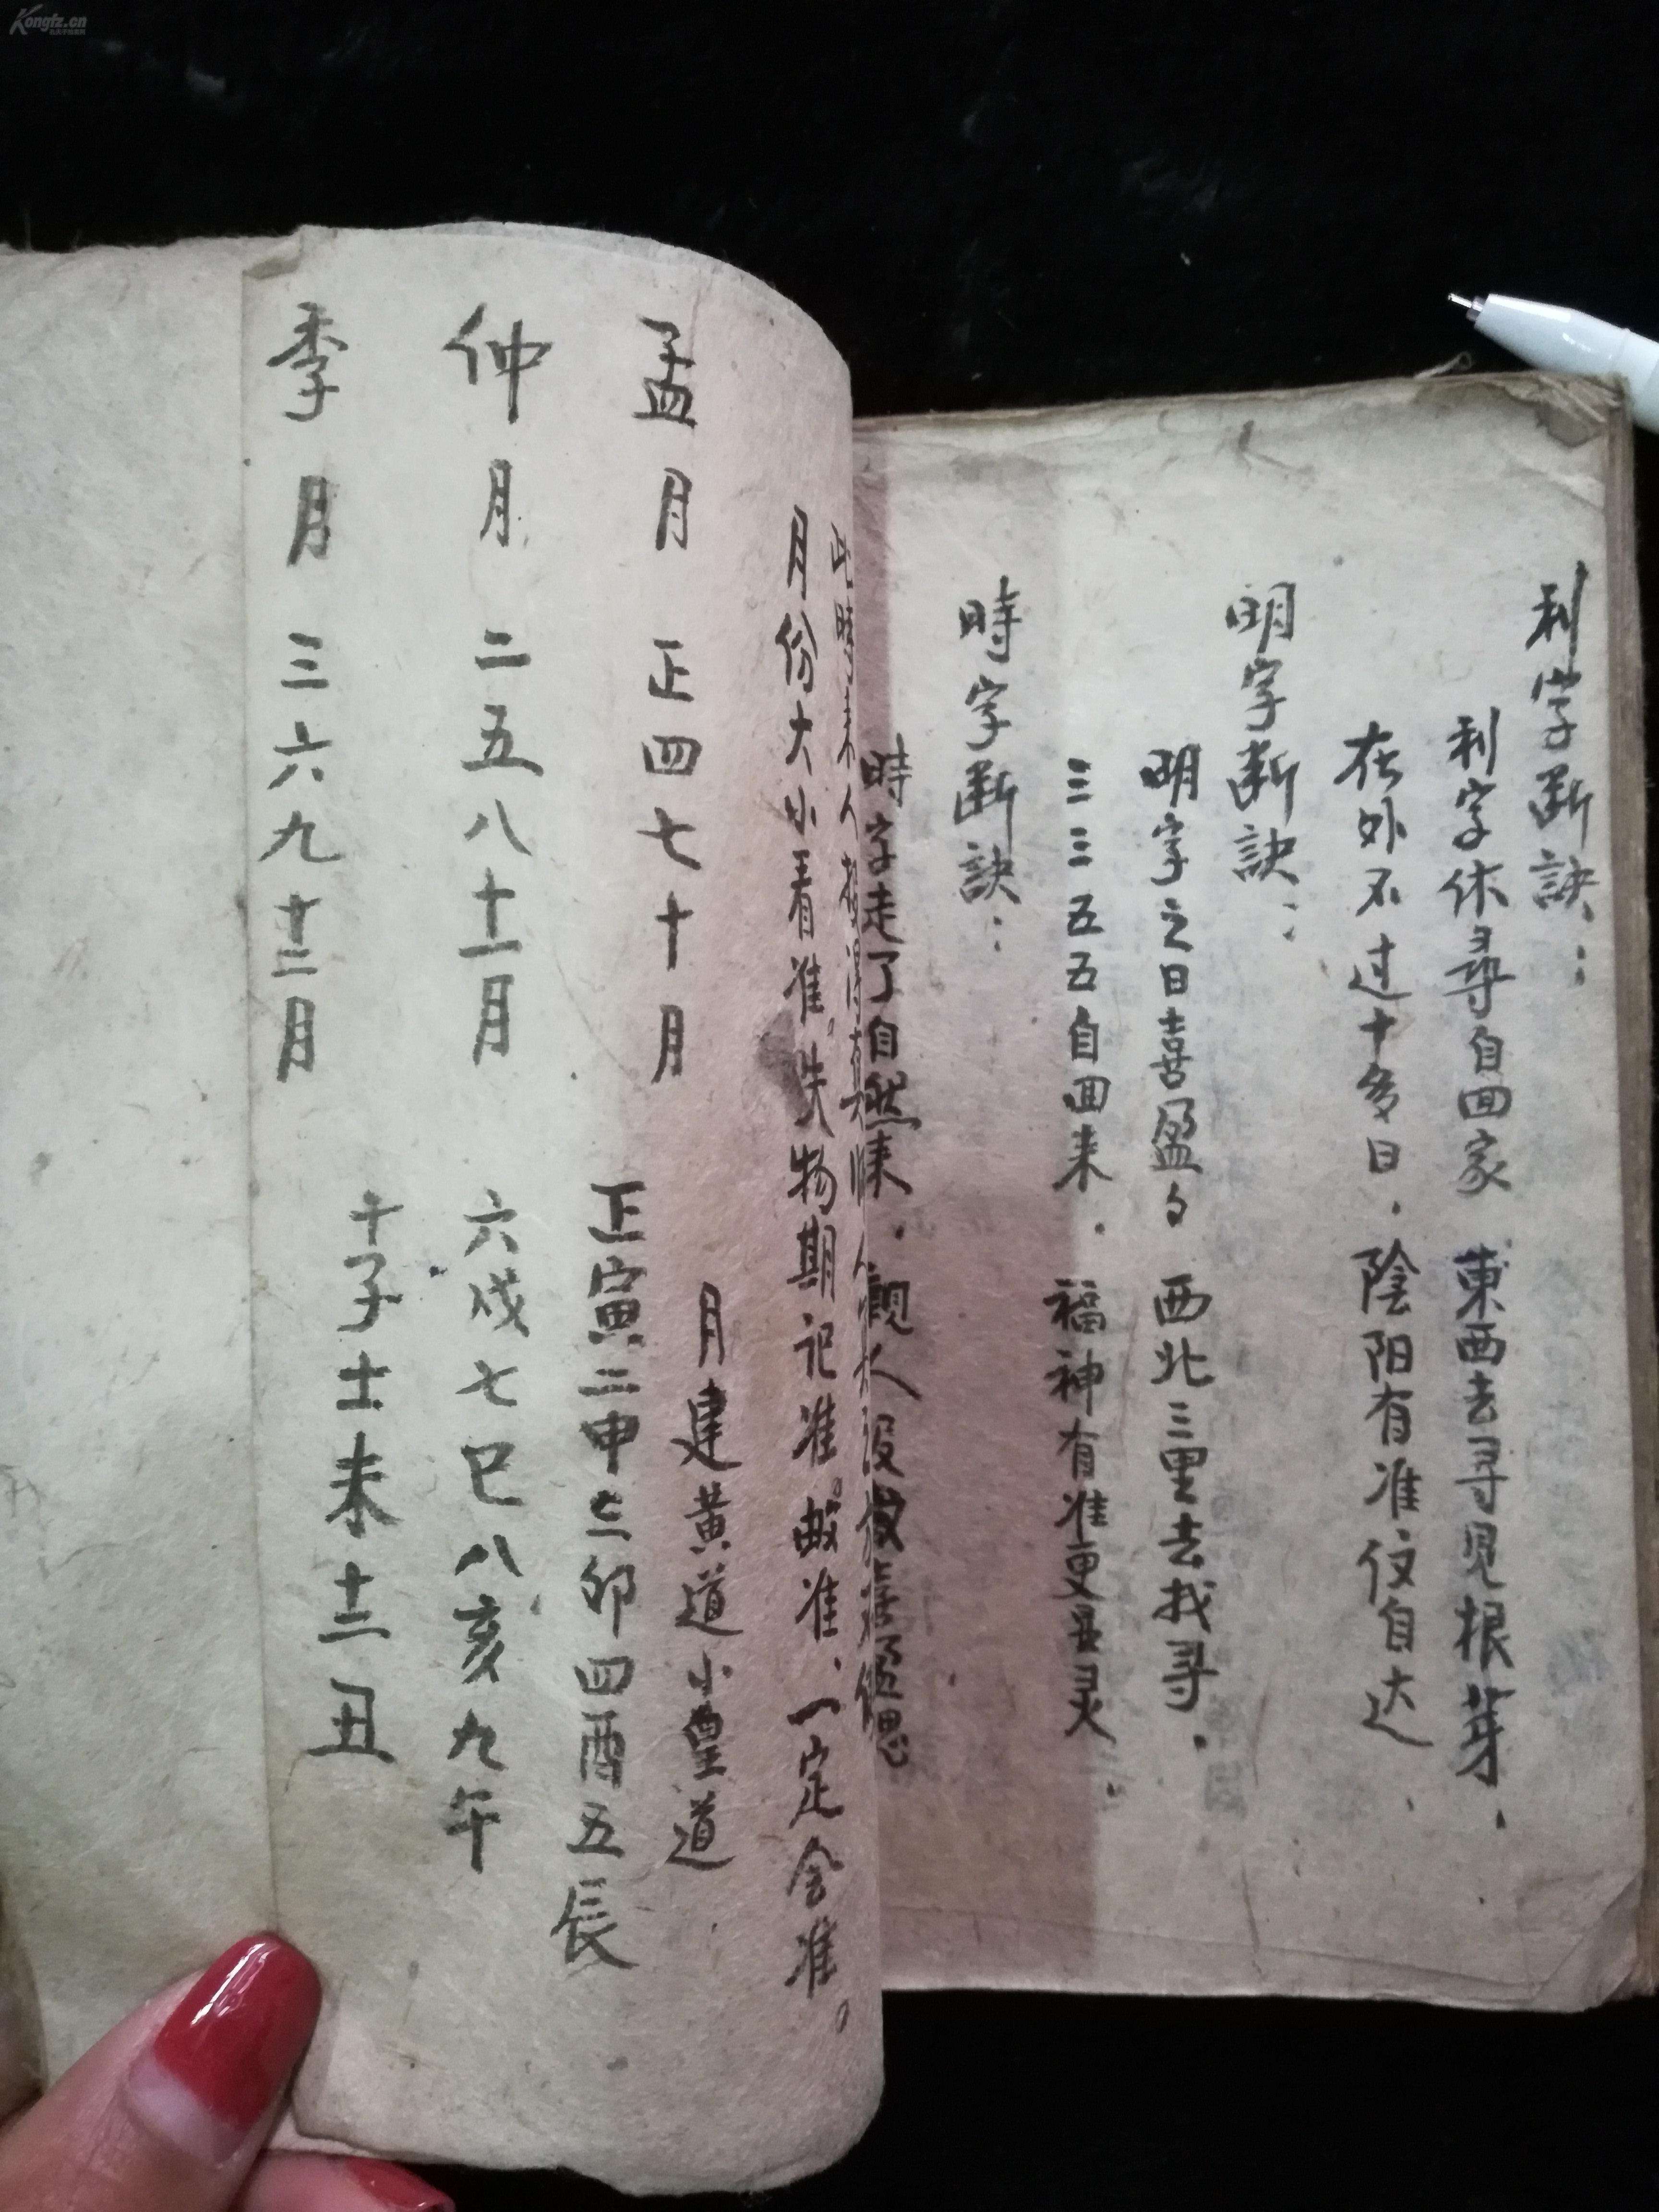 利字断訣：
利字休尋自回家 東西去寻见根芽．
在外不过十多日．陰阳有准仅自达．
明字断訣：
明字之日喜盈々 西北三里去找寻．
三三五五自回来．福神有准更显灵．
時字断訣：
時字走了自然来．觀人
此時来人
月份大小看准。失物期记准。故准．一定会准。
月建黄道小皇道
孟月 正四七十月
正寅二申三卯四酉五辰
仲月 二五八十一月
六戌七巳八亥九午
季月 三六九十二月
十子十一未十二丑
Kongfz.cn